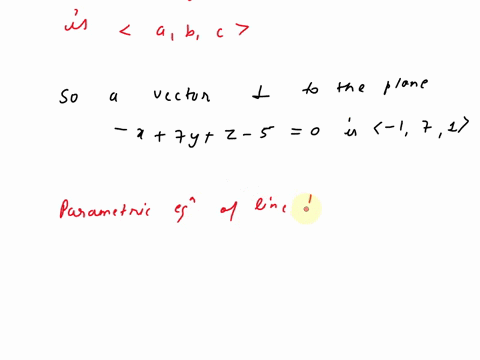 is < a, b, c >
So a vector ⊥ to the plane
-x + 7y + z - 5 = 0 is <-1, 7, 1>
Parametric eqⁿ of line